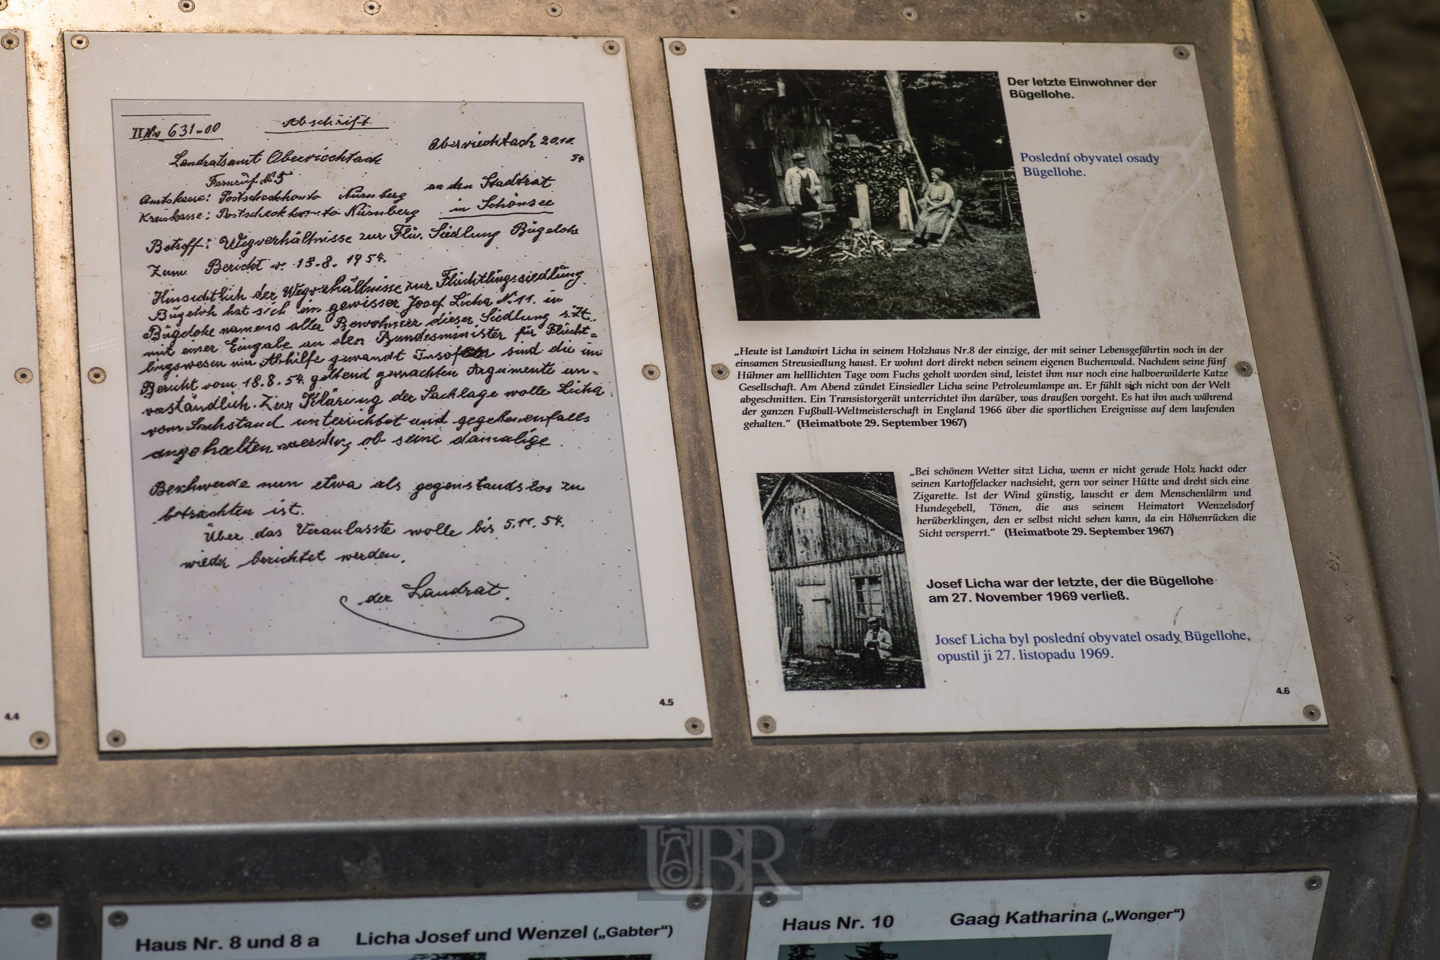 4.4
II Nr 631-00
Abschrift
Oberviechtach 20.10.
54
Landratsamt Oberviechtach
Fernruf Nr. 5
an den Stadtrat
Postscheckkonto Nürnberg
in Schönsee
Kreiskasse: Postscheckkonto Nürnberg
Betreff: Wegverhältnisse zur Flü. Siedlung Bügelohe
Zum Bericht v. 18.8.1954.
Hinsichtlich der Wegverhältnisse zur Flüchtlingssiedlung
Bügeloh hat sich ein gewisser Josef Licha N. 11. in
Bügelohe namens aller Bewohner dieser Siedlung s.Zt.
mit einer Eingabe an den Bundesminister für Flücht=
lingswesen um Abhilfe gewandt Insofern sind die im
Bericht vom 18.8.54. geltend gemachten Argumente un-
verständlich. Zur Klärung der Sachlage wolle Licha
vom Sachstand unterrichtet und gegebenenfalls
angehalten werden, ob seine damalige
Beschwerde nun etwa als gegenstandslos zu
betrachten ist.
Über das Veranlasste wolle bis 5.11.54.
wieder berichtet werden.
der Landrat.
4.5
Der letzte Einwohner der
Bügellohe.
Poslední obyvatel osady
Bügellohe.
„Heute ist Landwirt Licha in seinem Holzhaus Nr.8 der einzige, der mit seiner Lebensgefährtin noch in der
einsamen Streusiedlung haust. Er wohnt dort direkt neben seinem eigenen Buchenwald. Nachdem seine fünf
Hühner am helllichten Tage vom Fuchs geholt worden sind, leistet ihm nur noch eine halbverwilderte Katze
Gesellschaft. Am Abend zündet Einsiedler Licha seine Petroleumlampe an. Er fühlt sich nicht von der Welt
abgeschnitten. Ein Transistorgerät unterrichtet ihn darüber, was draußen vorgeht. Es hat ihn auch während
der ganzen Fußball-Weltmeisterschaft in England 1966 über die sportlichen Ereignisse auf dem laufenden
gehalten.“ (Heimatbote 29. September 1967)
„Bei schönem Wetter sitzt Licha, wenn er nicht gerade Holz hackt oder
seinen Kartoffelacker nachsieht, gern vor seiner Hütte und dreht sich eine
Zigarette. Ist der Wind günstig, lauscht er dem Menschenlärm und
Hundegebell, Tönen, die aus seinem Heimatort Wenzelsdorf
herüberklingen, den er selbst nicht sehen kann, da ein Höhenrücken die
Sicht versperrt.“ (Heimatbote 29. September 1967)
Josef Licha war der letzte, der die Bügellohe
am 27. November 1969 verließ.
Josef Licha byl poslední obyvatel osady Bügellohe,
opustil ji 27. listopadu 1969.
4.6
UBR
©
Haus Nr. 8 und 8 a Licha Josef und Wenzel („Gabter“)
Haus Nr. 10 Gaag Katharina („Wonger“)